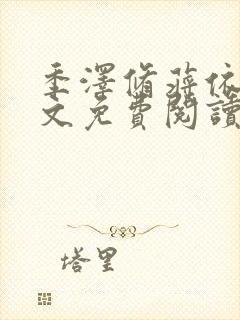 季澤脩蔣依
文免費閱讀
塔里